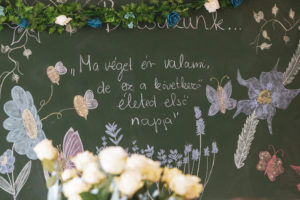 „Ma véget ér valami,
de ez a következő
életed első
napja"